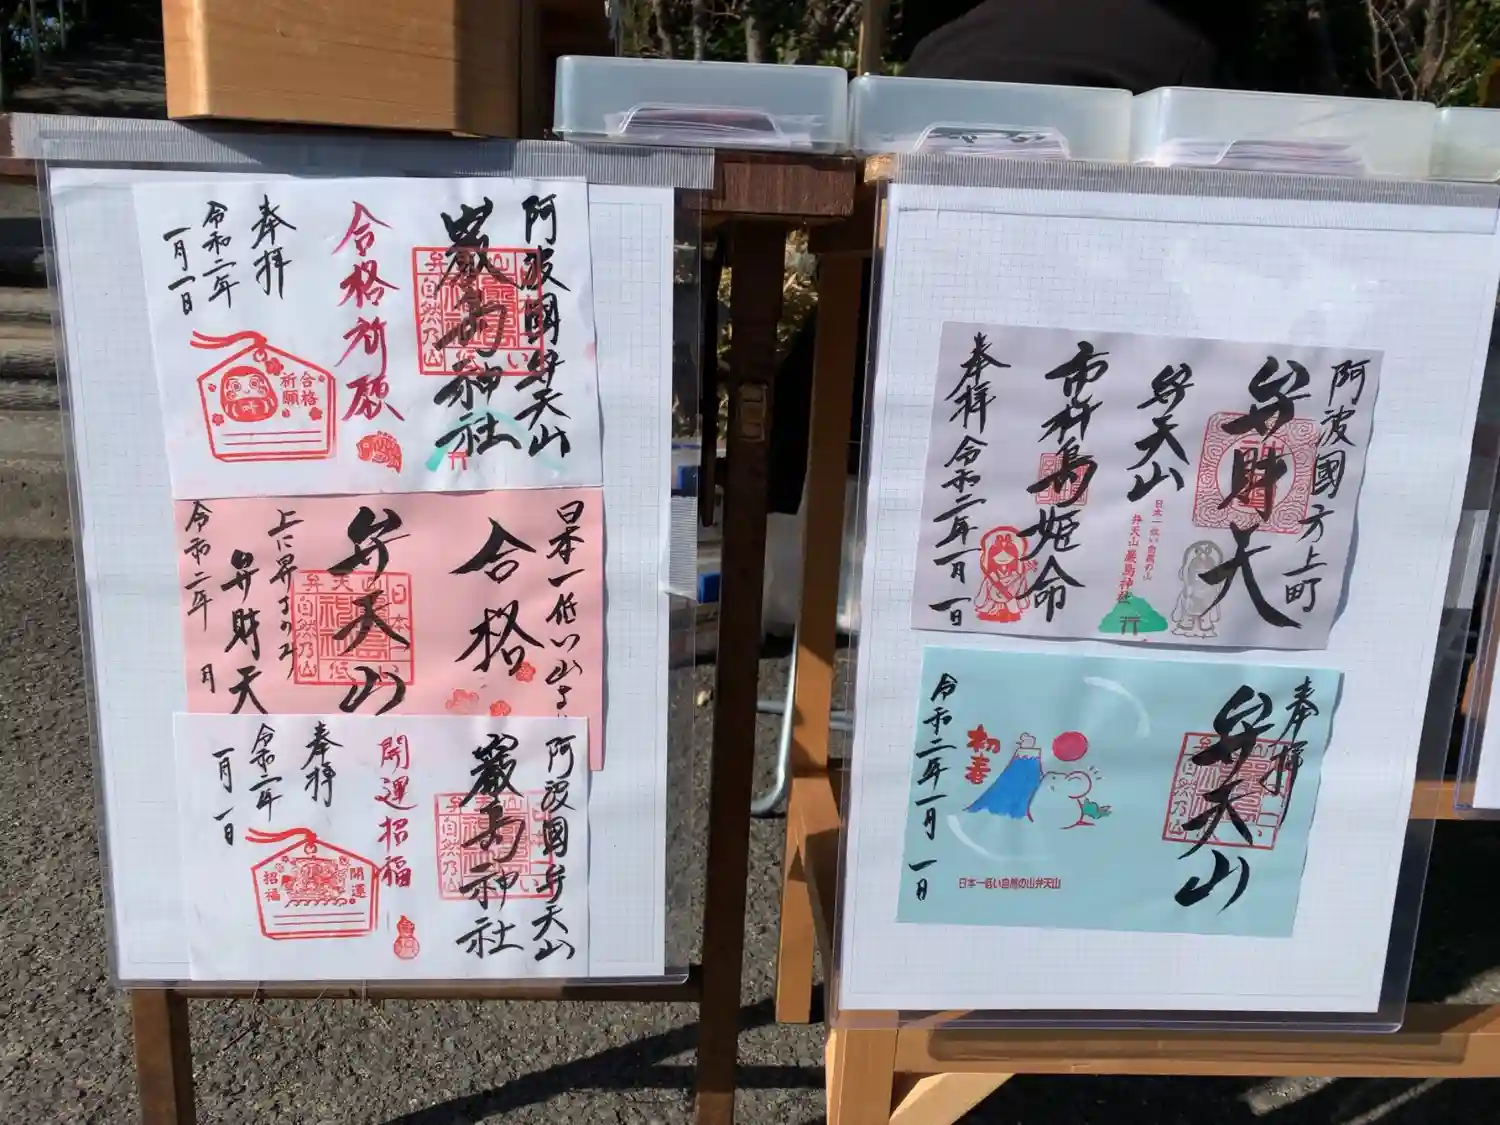 阿波國弁天山
巌島神社
合格祈願
奉拝
令和二年
一月一日
合格
祈願
日本一低い山
合格
弁天山
上に昇るのみ
弁財天
令和二年 月
阿波國弁天山
巌島神社
開運招福
奉拝
令和二年
一月一日
開運
招福
阿波國方上町
弁財天
弁天山
日本一低い自然の山
弁天山 巌島神社
市杵島姫命
奉拝 令和二年一月一日
奉拝
弁天山
初春
日本一低い自然の山弁天山
令和二年一月一日